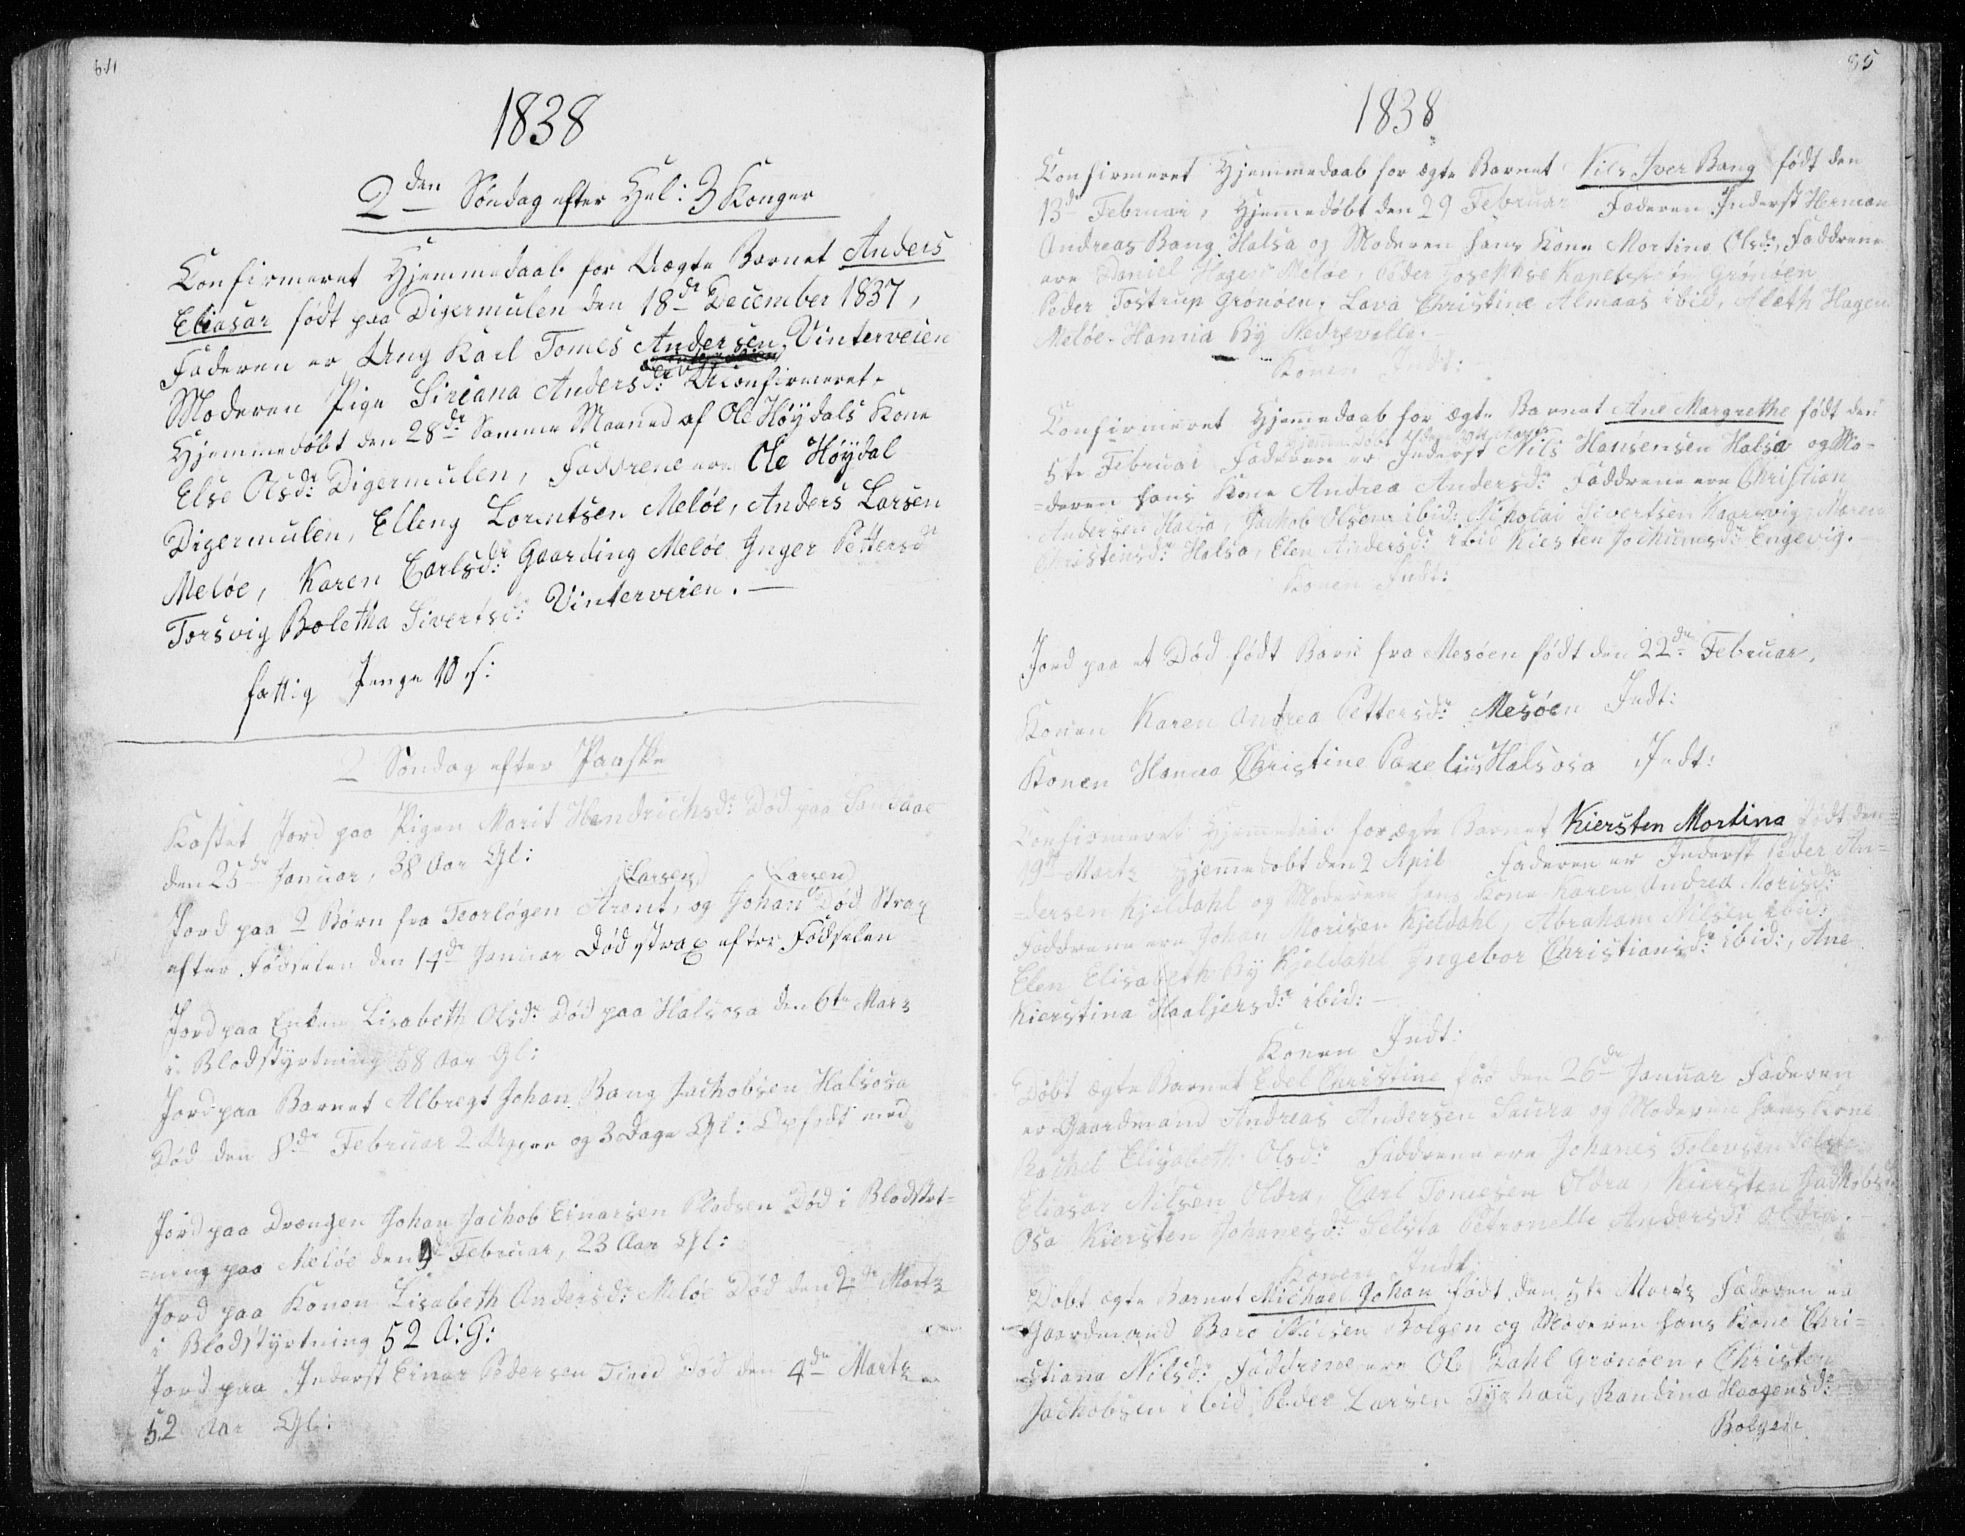 1838
2den Söndag efter Hel: 3 Konger
Confirmeret Hjemmedaab for Uægte Barnet Anders
Eliasar födt paa Digermulen den 18de December 1837,
Faderen er Ung Karl Tomes Andersen Vinterveien
Moderen Pige Siriana Andersdr: Uconfirmeret.
Hjemmedöbt den 28de Samme Maaned af Ole Höydals Kone
Else Olsdr: Digermulen, Faddrene ere Ole Höydal
Digermulen, Elleng Lorntsen Melöe, Anders Larsen
Melöe, Karen Carlsdr: Gaarding Melöe Inger Pettersdr
Torsvig Boletha Sivertsdr: Vinterveien.
fattig Penge 10 s:
2 Söndag efter Paaske
Kastet Jord paa Pigen Marit Hendrichsdr: Död paa Sandaae
den 25de Januar, 38 Aar Gl:
(Larsen) (Larsen)
Jord paa 2 Börn fra Teorlögen Arent, og Johan Död Strax
efter Födselen den 14de Januar Död strax efter Födselen
Jord paa Enken Lisabeth Olsdr: Död paa Halsosa den 6te Marz
i Blodstyrtning 58 Aar Gl:
Jord paa Barnet Albregt Johan Bang Jachobsen Halsosa
Död den 8de Februar 2 Uger og 3 Dage Gl:
Jord paa Drængen Johan Jachob Einarsen Död i Blodstyrt-
=ning paa Melöe den 9de Februar, 23 Aar Gl:
Jord paa Konen Lisabeth Andersdr: Melöe Död den 2de Martz
i Blodstyrtning 52 A: G:
Jord paa Inderst Einar Pedersen Död den 4de Martz
52 Aar Gl:
85
1838
Confirmeret Hjemmedaab for ægte Barnet Nils Iver Bang födt den
13de Februai, Hjemedöbt den 29 Februar Faderen Inderst Herman
Andreas Bang Halsa og Moderen hans Kone Martine Olsdr: Faddrene
ere Daniel Hagen Melöe, Peder Grönöen
Peder Tostrup Grönöen, Lava Christine Almaas ibid, Aleth Hagen
Melöe. Hanna By Nedrevelle.
Konen Indt:
Confirmeret Hjemedaab for ægte Barnet Ane Margrethe födt den
5te Februai Faderen er Inderst Nils Hansensen Halsa og Mo-
=deren hans Kone Andrea Andersdr: Faddrene ere Christian
Andersen Halsa, Jachob Olsen ibid: Nikolai Sivertsen Kaarsvig Maren
Christensdr: Halsa, Elen Andersdr: ibid Kiersten Jochumsdr: Engevig.
Konen Indt:
Jord paa et Död födt Barn fra Mesöen födt den 22de Februar.
Konen Karen Andrea Pettersdr: Mesöen Indt:
Konen Hanna Christine Halsosa Indt:
Confirmeret Hjemedaab for ægte Barnet Kiersten Mortina födt den
19de Martz Hjemmedöbt den 2 April Faderen er Inderst Peder An=
=dersen Kjeldahl og Moderen hans Kone Karen Andrea Morisdr:
Faddrene ere Johan Morisen Kjeldahl, Abraham Nilsen ibid:
Elen Elisabeth By Kjeldahl Ingebor Christiansdr: ibid:, Ane
Kierstina Haaljersdr: ibid:
Konen Indt:
Döbt ægte Barnet Edel Christine föd den 26de Januar Faderen
er Gaardmand Andreas Andersen Saura og Moderen hans Kone
Rachel Elisabeth Olsdr: Faddrene ere Johanes Tolevsen
Eliasar Nilsen Oldra, Carl Tomesen Oldra, Kiersten Jachobsdr
Osa Kiersten Johanesdr: Selsta Petronelle Andersdr: Oldra.
Konen Indt:
Döbt ægte Barnet Michael Johan födt den 5te Marts Faderen er
Gaardmand Baro Nilsen Bolgen og Moderen hans Kone Chri=
=stiana Nilsdr: Faddrene ere Ole Dahl Grönöen, Christen
Jachobsen ibid Peder Larsen Randina Haagensdr:
Bolgen